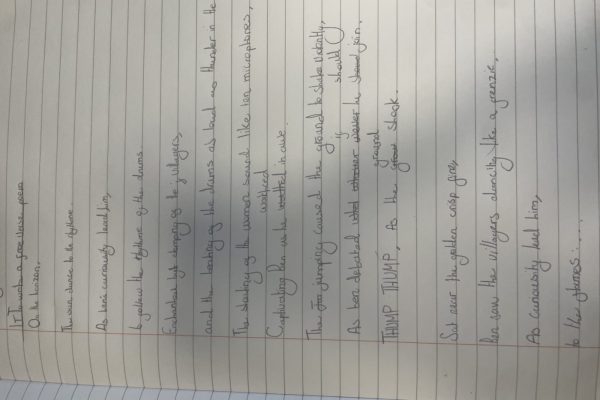 IT The write a free verse poem
On the horizon,
The sun dance to the rythme.
As ben's curiousity lead him,
to follow the rhythme of the drums
Enchanted by chanting of the villagers,
and the beating of the drums as loud as thunder in the
The shouting of the women sound like ten microphones,
Captivating Ben as he watched in awe.
The jumping caused the ground to shake violently,
As ben debated if he should join.
THUMP THUMP, As the ground shook.
Sat near the golden crisp fire,
Ben saw the villagers dancing like a frenzie,
As curiousity lead him,
to the flames.....